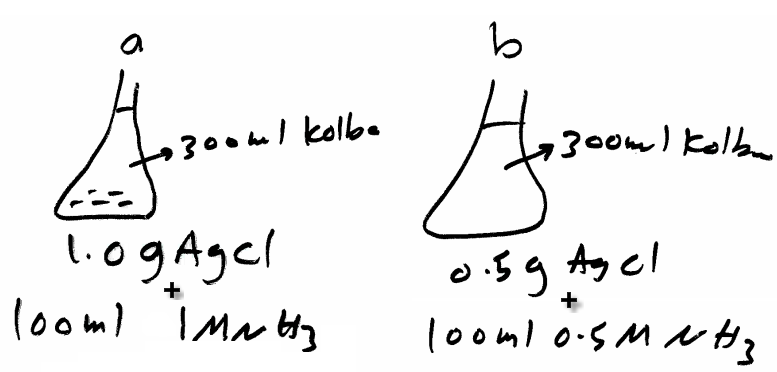 a
300ml kolbe
1.0g AgCl
+
100ml 1M NH3
b
300ml kolbe
0.5g AgCl
+
100ml 0.5M NH3